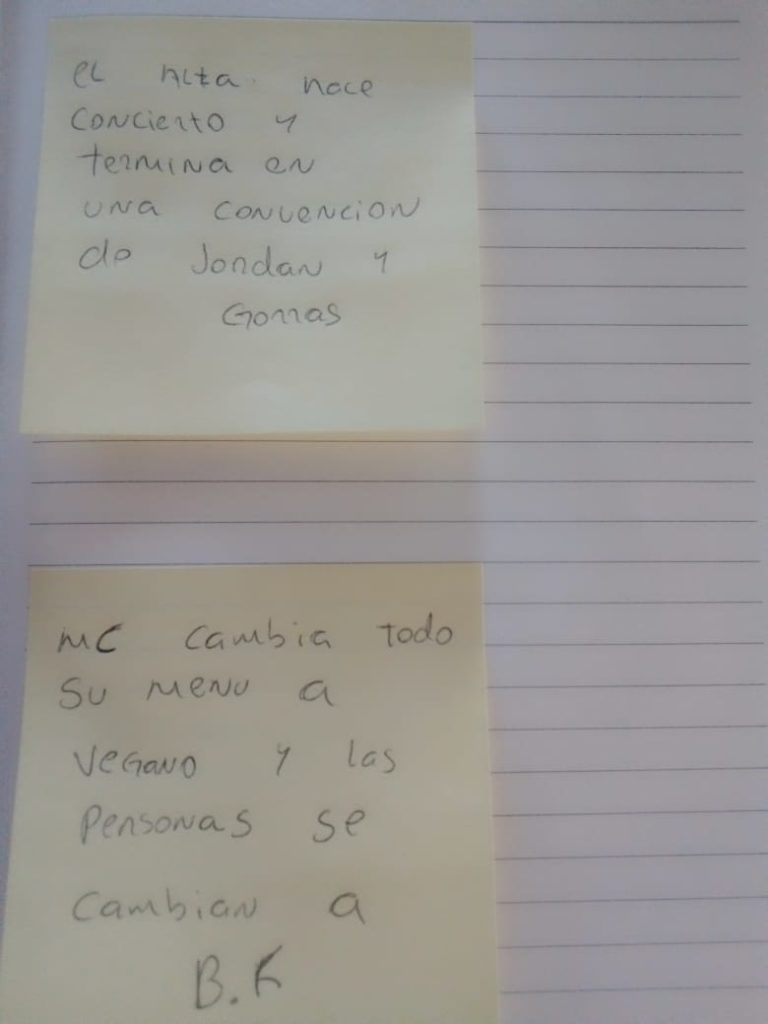 el Alta hace
concierto y
termina en
una convencion
de Jordan y
Gorras
MC cambia todo
su menu a
vegano y las
Personas se
cambian a
B.K